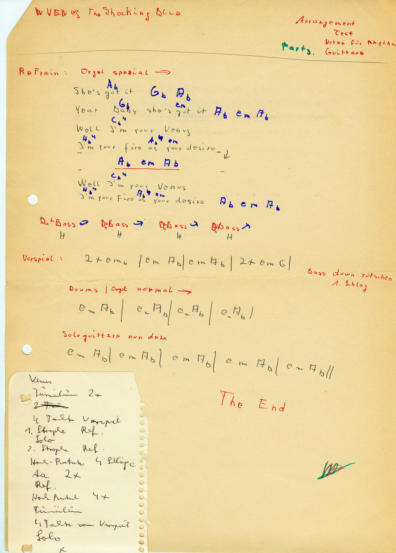 VENUS The Shocking Blue
Arrangement
Text
Noten für Rhythm
Parts. Guittare
Refrain: Orgel spezial →
Ab
She's got it Gb Ab
Gb em
Year Baby she's got it Ab em Ab
Cb4
Well I'm your Venus
Hb4 Ab4 em
I'm your Fire as your desire
Ab em Ab
Cb4
Well I'm your Venus
Hb4 Ab4 em
I'm your Fire as your desire Ab em Ab
Bass Bass Bass Bass
H H H H
Vorspiel: 2x emb | em Ab | em Ab | 2x em G |
Bass down rutschen
1. Schlag
Drums / Orgel normal →
em Ab | em Ab | em Ab | em Ab |
Sologuittare nun dazu
em Ab | em Ab | em Ab | em Ab | em Ab ||
The End
Venus
2x
4 Takte Vorspiel
1. Strophe Ref.
Solo
2. Strophe Ref.
4 Schläge
2x
Ref.
4x
4 Takte vom Vorspiel
Solo
x